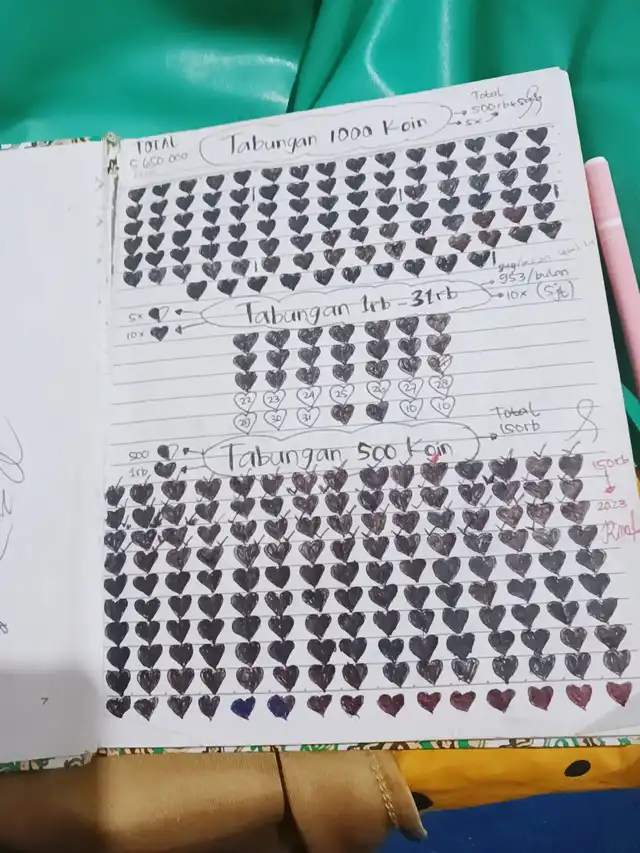 TOTAL
Total
Tabungan 1000 Koin
5x
953/bulan
Tabungan 1rb - 31rb
10x (5jt)
5x
10x
22 23 24 25 26 27 28
29 30 31 10 10
Total
150rb
500
1rb
Tabungan 500 Koin
150rb
2023